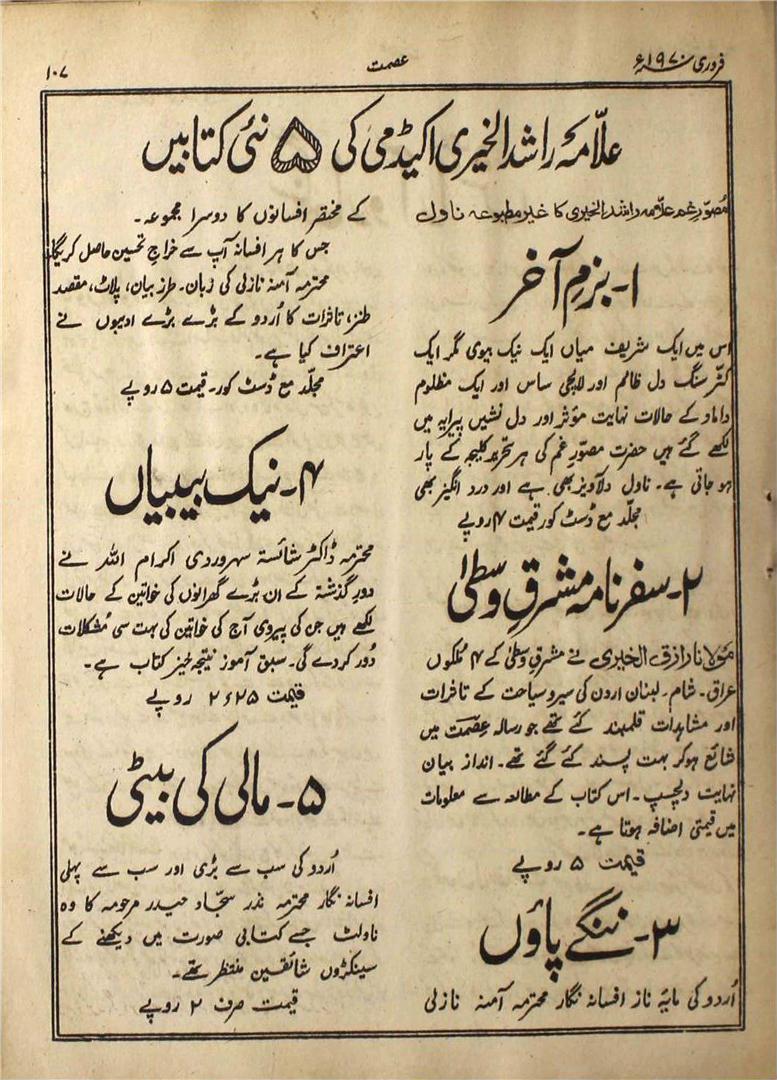 فروری ۱۹۷۰ء
عصمت
۱۰۷
علّامہ راشد الخیری اکیڈمی کی ۵ نئی کتابیں
مُصوّرِ غم علّامہ راشد الخیری کا غیر مطبوعہ ناول
۱۔ بزمِ آخر
اس میں ایک شریف میاں ایک نیک بیوی مگر ایک
کٹّر سنگ دل ظالم اور لالچی ساس اور ایک مظلوم
داماد کے حالات نہایت مؤثر اور دل نشیں پیرایہ میں
لکھے گئے ہیں حضرت مصوّرِ غم کی ہر تحریر کلیجہ کے پار
ہو جاتی ہے۔ ناول دلآویز بھی ہے اور درد انگیز بھی
مجلّد مع ڈسٹ کور قیمت ۴ روپے
۲۔ سفر نامہ مشرقِ وسطیٰ
مولانا رازق الخیری نے مشرقِ وسطیٰ کے ۴ مُلکوں
عراق۔ شام۔ لبنان اردن کی سیر و سیاحت کے تاثرات
اور مشاہدات قلمبند کئے تھے جو رسالہ عِصمَت میں
شائع ہو کر بہت پسند کئے گئے تھے۔ انداز بیان
نہایت دلچسپ۔ اس کتاب کے مطالعہ سے معلومات
میں قیمتی اضافہ ہوتا ہے۔
قیمت ۵ روپے
۳۔ ننگے پاؤں
اُردو کی مایۂ ناز افسانہ نگار محترمہ آمنہ نازلی
کے مختصر افسانوں کا دوسرا مجموعہ۔
جس کا ہر افسانہ آپ سے خراجِ تحسین حاصل کریگا۔
محترمہ آمنہ نازلی کی زبان۔ طرزِ بیان، پلاٹ، مقصد
طنز، تاثرات کا اُردو کے بڑے بڑے ادیبوں نے
اعتراف کیا ہے۔
مجلّد مع ڈسٹ کور۔ قیمت ۵ روپے
۴۔ نیک بیبیاں
محترمہ ڈاکٹر شائستہ سہروردی اکرام اللہ نے
دورِ گذشتہ کے ان بڑے گھرانوں کی خواتین کے حالات
لکھے ہیں جن کی پیروی آج کی خواتین کی بہت سی مُشکلات
دُور کر دے گی۔ سبق آموز نتیجہ خیز کتاب ہے۔
قیمت ۲٫۲۵ روپے
۵۔ مالی کی بیٹی
اُردو کی سب سے بڑی اور سب سے پہلی
افسانہ نگار محترمہ نذر سجّاد حیدر مرحومہ کا وہ
ناولٹ جسے کتابی صورت میں دیکھنے کے
سینکڑوں شائقین منتظر تھے۔
قیمت صرف ۲ روپے